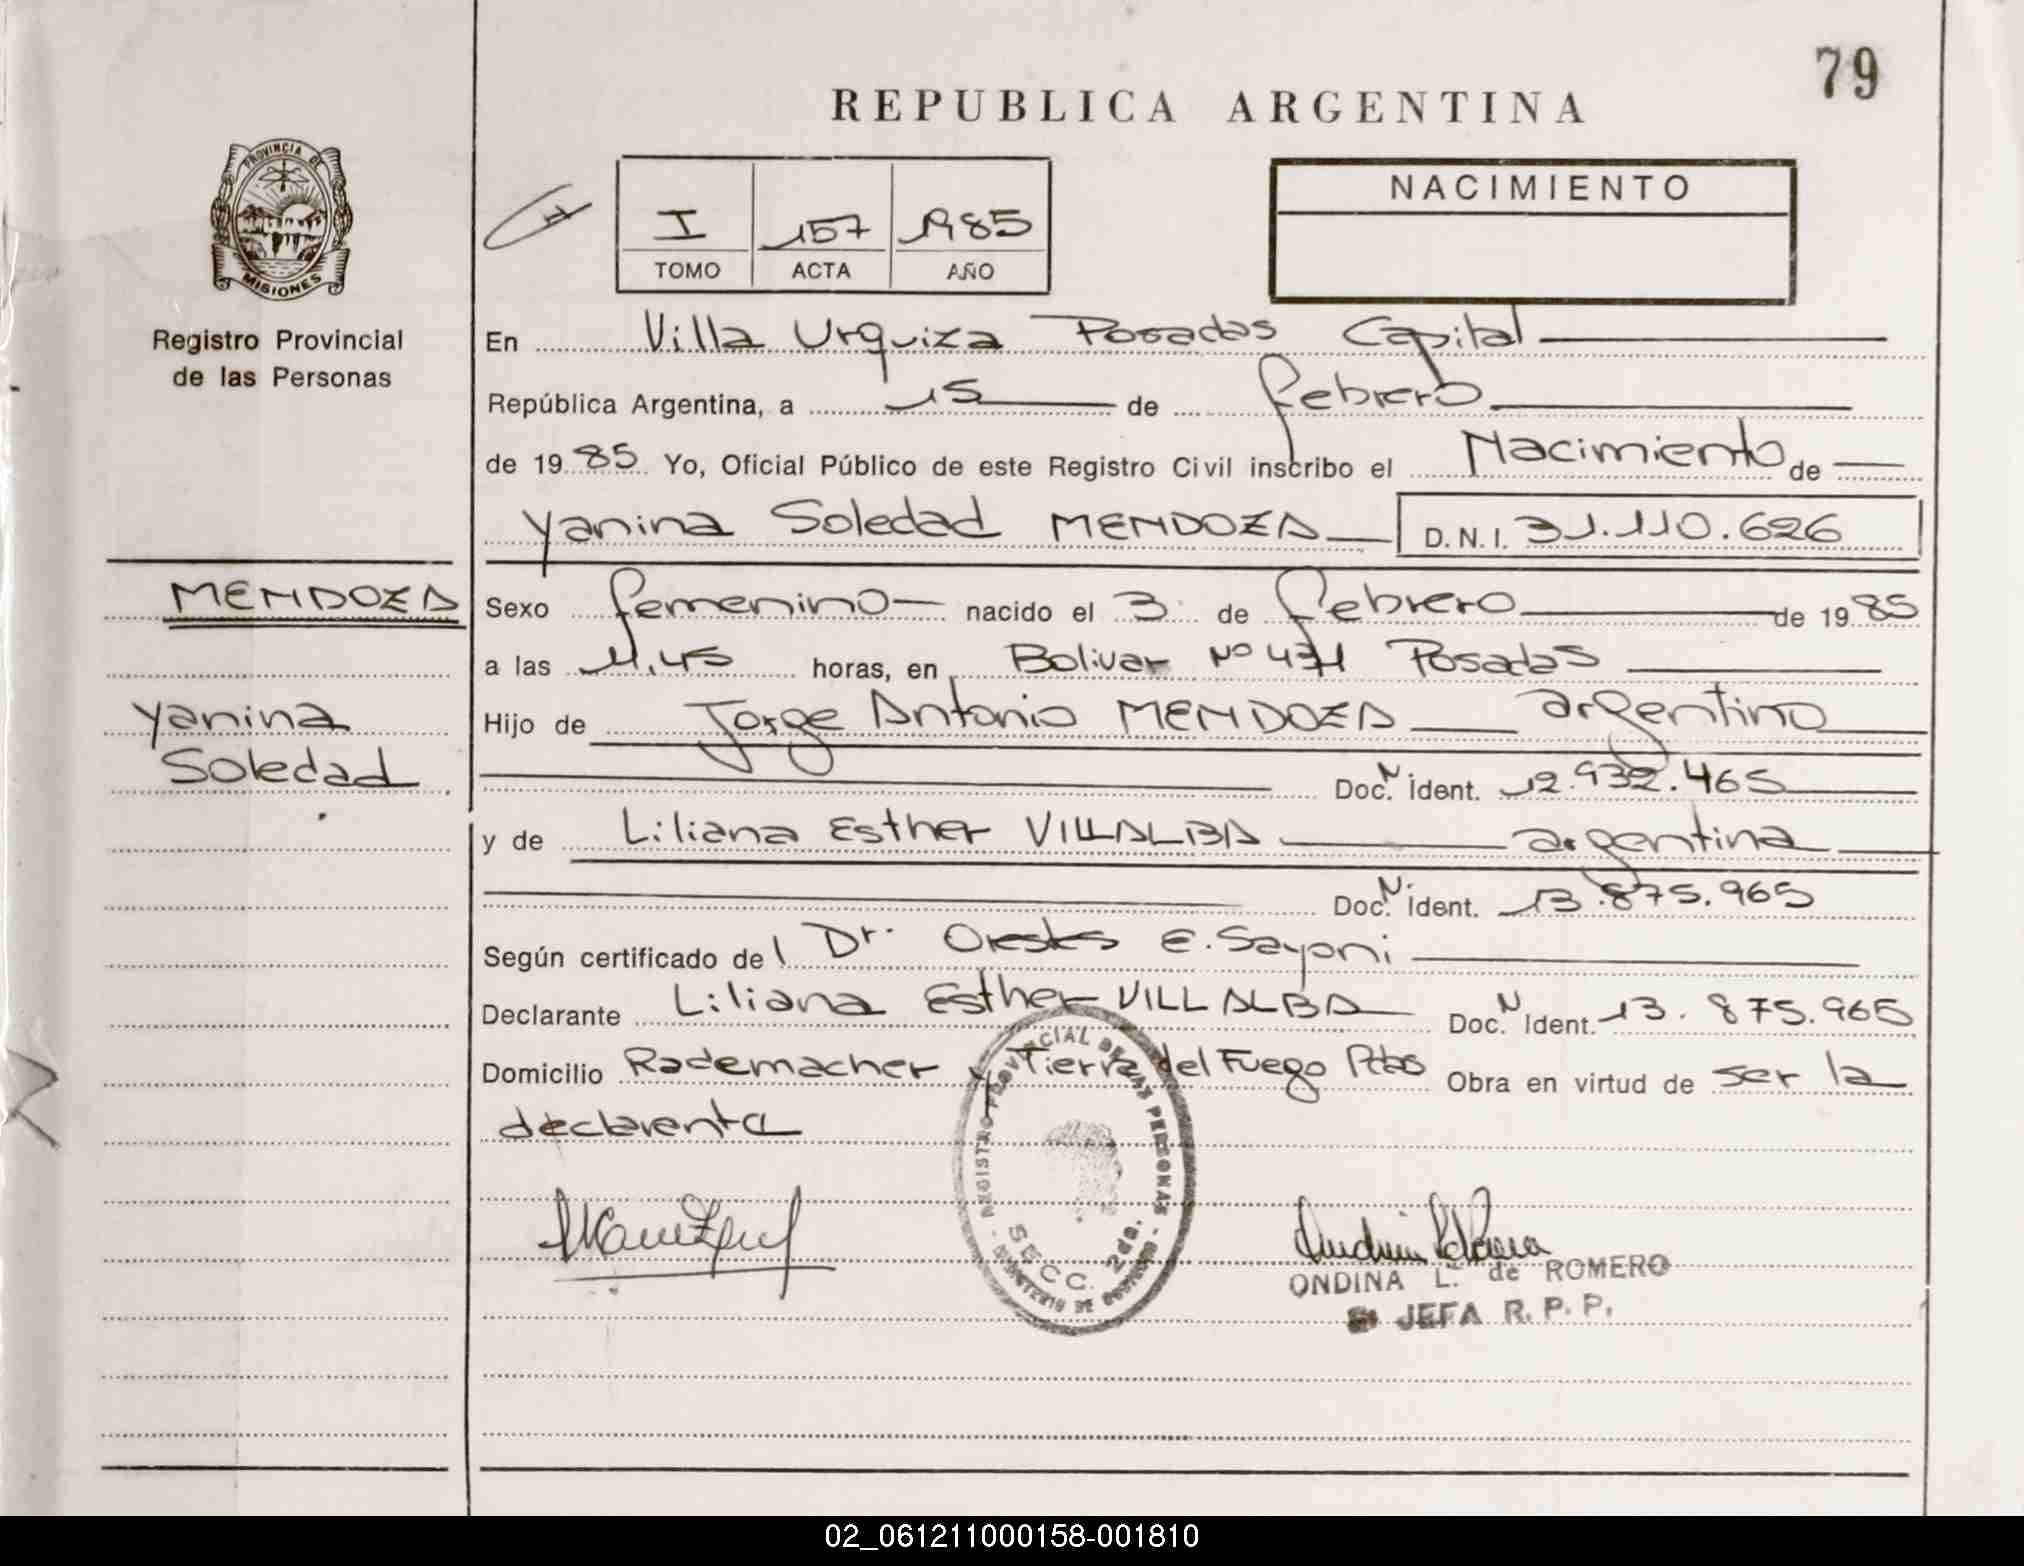 79
REPUBLICA ARGENTINA
PROVINCIA DE
MISIONES
Registro Provincial
de las Personas
I 157 1985
TOMO ACTA AÑO
NACIMIENTO
En Villa Urquiza Posadas Capital
República Argentina, a 15 de febrero
de 1985 Yo, Oficial Público de este Registro Civil inscribo el Nacimiento de
Yanina Soledad MENDOZA D.N.I. 31.110.626
MENDOZA
Yanina
Soledad
Sexo femenino nacido el 3 de febrero de 1985
a las 11,45 horas, en Bolivar Nº 431 Posadas
Hijo de Jorge Antonio MENDOZA argentino
Doc. N. Ident. 12.932.465
y de Liliana Esther VILLALBA argentina
Doc. N. Ident. 13.875.965
Según certificado del Dr. Orestes E. Sayoni
Declarante Liliana Esther VILLALBA Doc. N Ident. 13.875.965
Domicilio Rademacher y Tierra del Fuego Pdas Obra en virtud de ser la
declarenta
REGISTRO PROVINCIAL DE LAS PERSONAS
SECC. 2da.
MINISTERIO DE GOBIERNO
ONDINA L. de ROMERO
JEFA R. P. P.
02_061211000158-001810